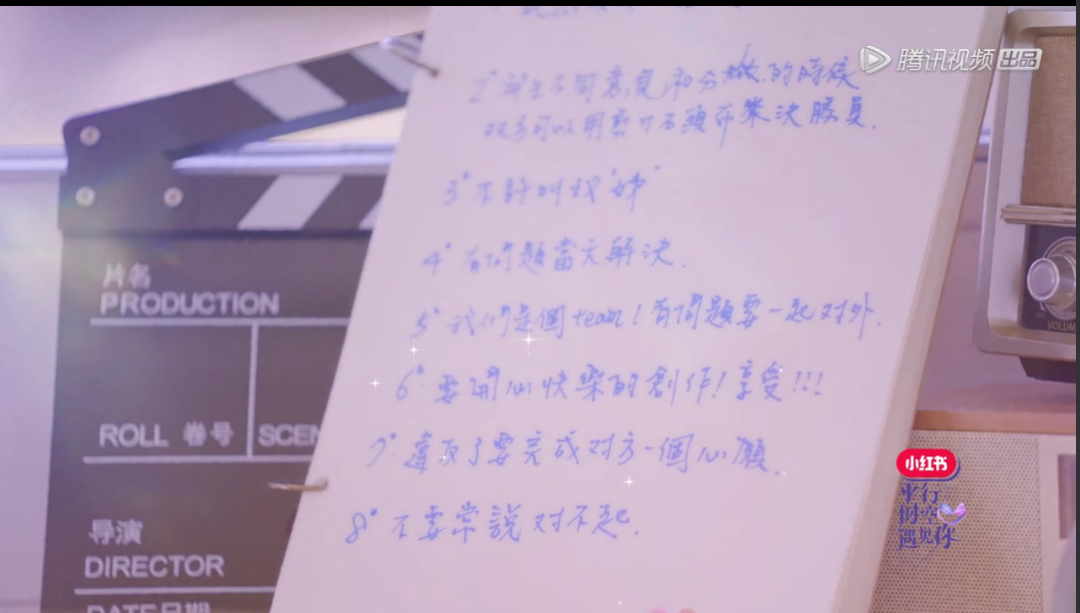 腾讯视频 出品
2° 產生不同意見和分歧的時候
可以用剪刀石頭布來決勝負.
3° 不許叫我"姊"
4° 有問題當天解決.
5° 我們是個team!有問題要一起对外.
6° 要開心快樂的創作!享受!!!
7° 違反了要完成对方一個心願.
8° 不要常說对不起.
片名
PRODUCTION
ROLL 卷号
SCEN
导演
DIRECTOR
DATE日期
VOLUM
小红书
平行
时空
遇见你